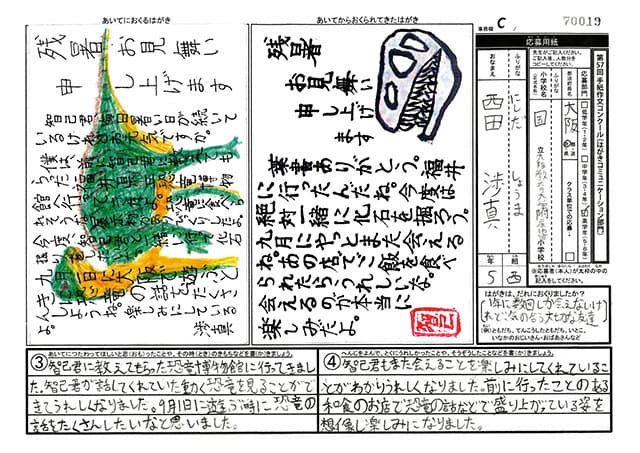 あいてにおくるはがき
残暑お見舞い
申し上げます
智己君、毎日暑い日が続いて
いるけれどお元気ですか。
僕は、
館へ行ってきたよ。
今度は
しようね。楽しみにしている
よ。
渉真
あいてからおくられてきたはがき
残暑
お見舞い
申し上げ
ます
葉書ありがとう。福井
に行ったんだね。今度は
絶対一緒に化石を掘ろう。
九月にやっとまた会える
ね。あの店でご飯を食べ
られたらうれしいな。
会えるのが本当に
楽しみだよ。
智己
事務局 C
70019
第57回 手紙作文コンクール(はがきコミュニケーション部門)
応募用紙
先生がご記入ください。
ご記入後、人数分を
コピーしてください。
応募部門
低学年(1・2年)
中学年(3・4年)
高学年(5・6年)
都道府県名
大阪
小学校名
国
小学校
クラス単位での応募
ふりがな
にしだ しょうま
おなまえ
西田 渉真
年 5
組 西
※応募者(本人)が太枠の中の
記入をしてください。
はがきは、だれにおくりましたか?
1年に数回しか会えないけ
れど、心のそう大切な友達
例)ともだち、てんこうしたともだち、いとこ、
いなかのおじいさん・おばあさんなど
③あいてにつたわってほしいと思(おも)ったことや、その時(とき)のきもちなどを書(か)きましょう。
智己君に教えてもらった恐竜博物館に行ってきまし
た。智己君が話してくれていた動く恐竜を見ることがで
きてうれしくなりました。9月1日に遊ぶ時に恐竜の
話をたくさんしたいなと思いました。
④へんじをよんで、とくにうれしかったことや、そうぞうしたことなどを書(か)きましょう。
智己君もまた会えることを楽しみにしてくれているこ
とがわかりうれしくなりました。前に行ったことのある
和食のお店で恐竜の話などで盛り上がっている姿を
想像し楽しみになりました。